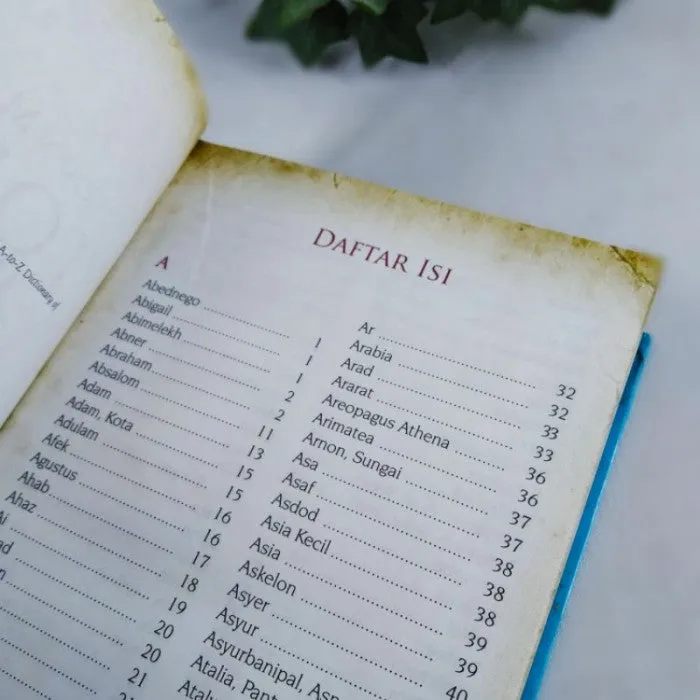 A-to-Z Dictionary
DAFTAR ISI
A
Abednego ........ 1
Abigail ........ 1
Abimelekh ........ 1
Abner ........ 2
Abraham ........ 2
Absalom ........ 11
Adam ........ 13
Adam, Kota ........ 15
Adulam ........ 15
Afek ........ 16
Agustus ........ 16
Ahab ........ 17
Ahaz ........ 18
19
20
20
21
Ar ........ 32
Arabia ........ 32
Arad ........ 33
Ararat ........ 33
Areopagus Athena ........ 36
Arimatea ........ 36
Arnon, Sungai ........ 37
Asa ........ 37
Asaf ........ 38
Asdod ........ 38
Asia Kecil ........ 38
Asia ........ 39
Askelon ........ 39
Asyer ........ 40
Asyur
Asyurbanipal,
Atalia,